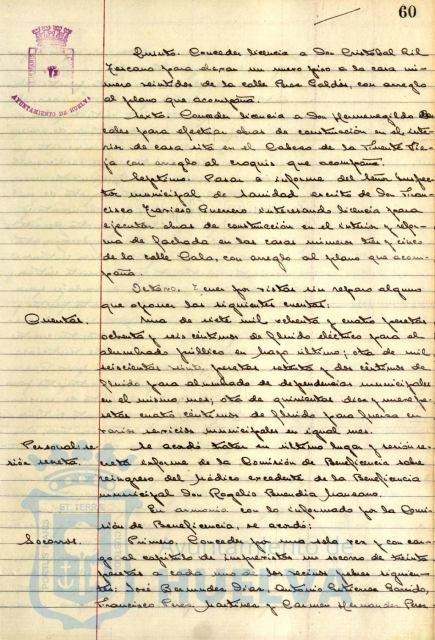 60
AYUNTAMIENTO DE HUELVA
Quinto. Conceder licencia a Don Cristobal Gil
Toscano para elevar un nuevo piso a la casa nú-
mero veintidos de la calle Perez Galdós, con arreglo
al plano que acompaña.
Sexto. Conceder licencia a Don Hermenegildo
cales para efectuar obras de construcción en el inte-
rior de casa sita en el Cabezo de la Fuente Vie-
ja con arreglo al croquis que acompaña.
Septimo. Pasar a informe del Señor Inspec-
tor municipal de Sanidad escrito de Don Fran-
cisco Guerrero interesando licencia para
ejecutar obras de construcción en el interior y refor-
ma de fachada en las casas números tres y cinco
de la calle Cala, con arreglo al plano que acom-
paña.
Octavo. Tener por vistas sin reparo alguno
que oponer las siguientes cuentas:
Cuentas. Una de siete mil ochenta y cuatro pesetas
ochenta y seis céntimos de flúido eléctrico para el
alumbrado público en mayo último; otra de mil
seiscientas veinte pesetas setenta y dos céntimos de
flúido para alumbrado de dependencias municipales
en el mismo mes; otra de quinientas diez y nueve pe-
setas cuatro céntimos de flúido para fuerza en
varios servicios municipales en igual mes.
Personal se- Se acordó tratar en último lugar y sesión se-
sión secreta. creta informe de la Comisión de Beneficencia sobre
reingreso del Médico excedente de la Beneficencia
municipal Don Rogelio Buendia Manzano.
En armonia con lo informado por la Comi-
sión de Beneficencia, se acordó:
Socorros. Primero. Conceder por una sola vez y con car-
go al capítulo de imprevistos un socorro de treinta
pesetas a cada uno de los vecinos pobres siguien-
tes: José Bermudez Diaz, Antonio Gutierrez Garrido,
Francisco Perez Martinez y Carmen Hernandez Perez
AYUNTAMIENTO DE
HUELVA